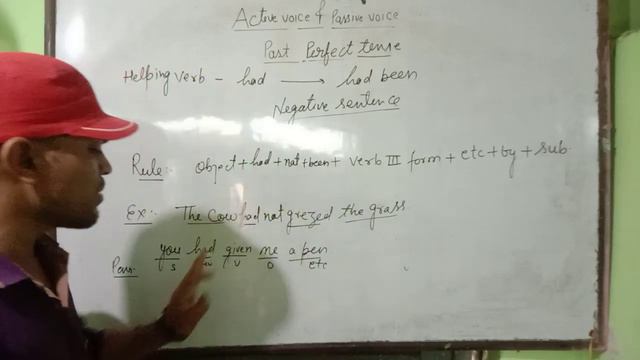 Active voice & Passive voice
Past Perfect tense
Helping verb - had → had been
Negative sentence
Rule: Object + had + not + been + verb III form + etc + by + sub.
Ex:- The Cow had not grezed the grass
you had given me a pen
Pass:- S v O etc